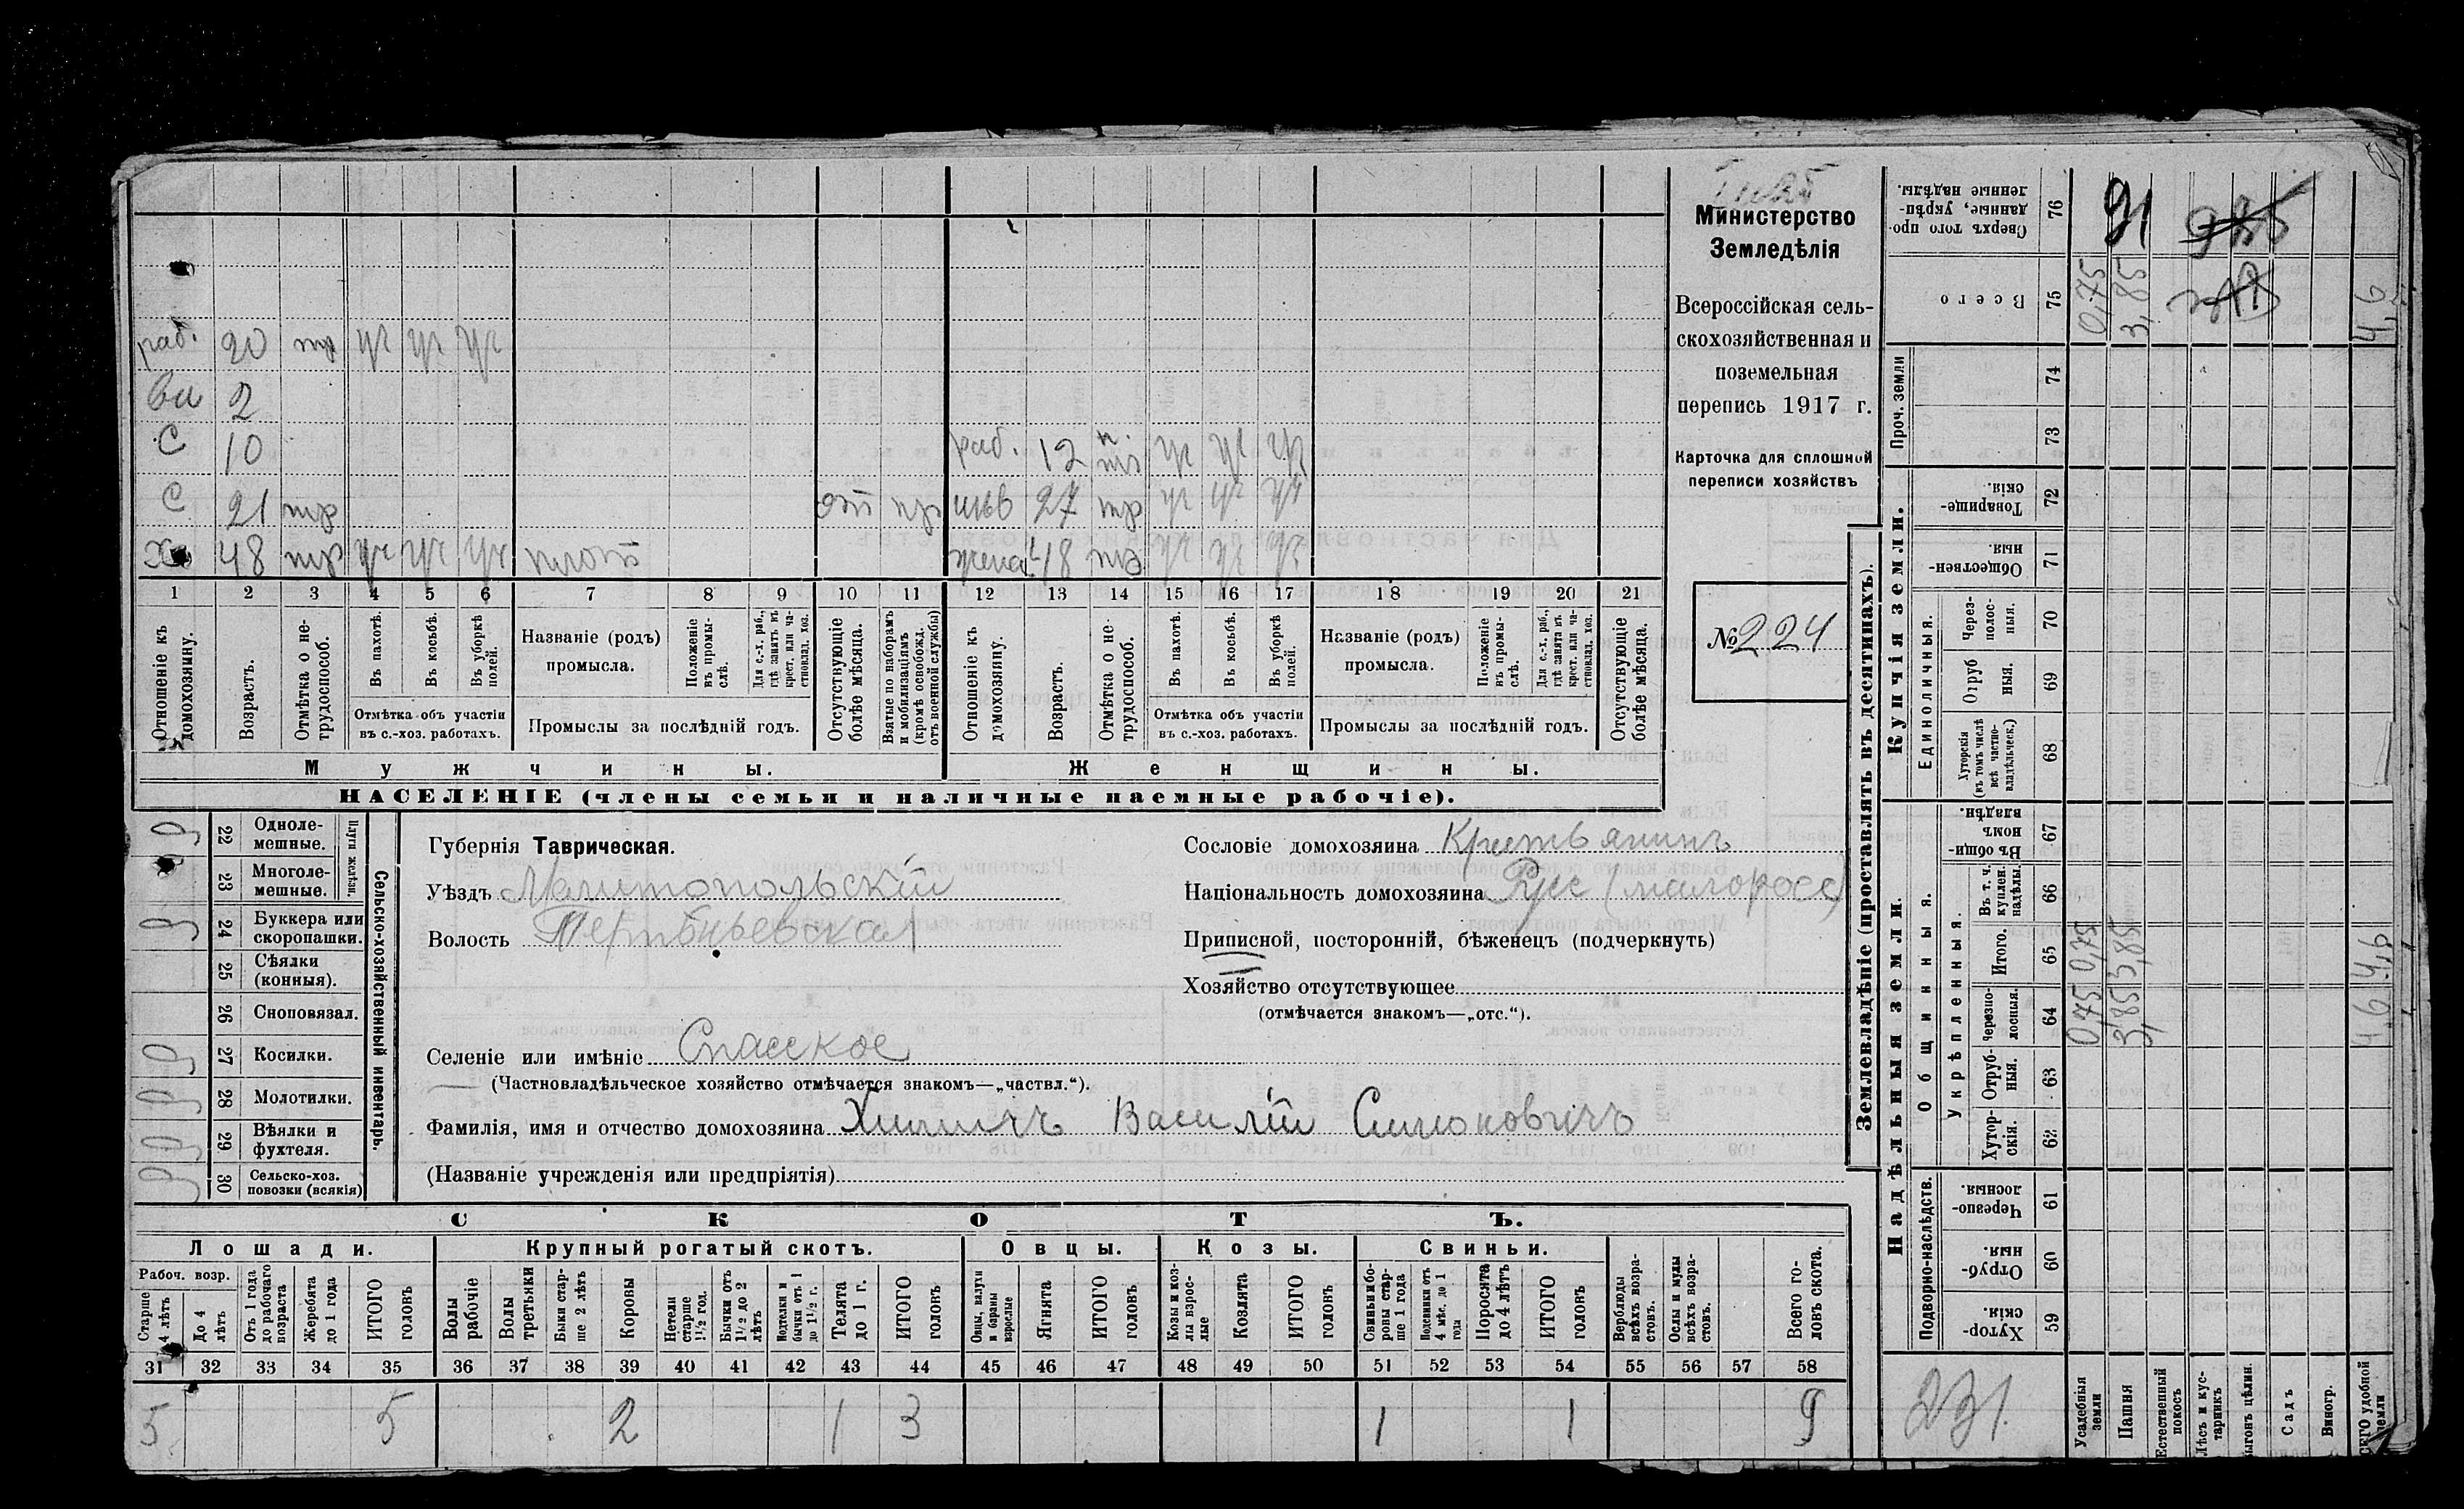 раб. 20 тр уч уч уч
вн 2
С 10 раб. 12 п. тр уч уч уч
С 21 тр от пр нев 27 тр уч уч уч
Хо 48 тр уч уч уч плот жена 48 тр уч уч уч
1 2 3 4 5 6 7 8 9 10 11 12 13 14 15 16 17 18 19 20 21
Отношеніе къ домохозяину.
Возрастъ.
Отмѣтка о не-трудоспособ.
Въ пахотѣ.
Въ косьбѣ.
Въ уборкѣ полей.
Отмѣтка объ участіи въ с.-хоз. работахъ.
Названіе (родъ) промысла.
Положеніе въ промы-слѣ.
Для с.-х. раб., гдѣ занятъ въ крест. или ча-стновлад. хоз.
Промыслы за послѣдній годъ.
Отсутствующіе болѣе мѣсяца.
Взятые по наборамъ и мобилизаціямъ (кромѣ освобожд. отъ военной службы)
Отношеніе къ домохозяину.
Возрастъ.
Отмѣтка о не-трудоспособ.
Въ пахотѣ.
Въ косьбѣ.
Въ уборкѣ полей.
Отмѣтка объ участіи въ с.-хоз. работахъ.
Названіе (родъ) промысла.
Положеніе въ промы-слѣ.
Для с.-х. раб., гдѣ занята въ крест. или ча-стновлад. хоз.
Промыслы за послѣдній годъ.
Отсутствующіе болѣе мѣсяца.
Мужчины.
Женщины.
НАСЕЛЕНІЕ (члены семьи и наличные наемные рабочіе).
Министерство
Земледѣлія
Всероссійская сель-
скохозяйственная и
поземельная
перепись 1917 г.
Карточка для сплошной
переписи хозяйствъ
№ 224
Сельско-хозяйственный инвентарь.
Плуги желѣзн.
22 Одноле-мешные.
23 Многоле-мешные.
24 Буккера или скоропашки.
25 Сѣялки (конныя).
26 Сноповязал.
27 Косилки.
28 Молотилки.
29 Вѣялки и фухтеля.
30 Сельско-хоз. повозки (всякія)
Губернія Таврическая.
Уѣздъ Мелитопольскій
Волость
Селеніе или имѣніе Спасское
(Частновладѣльческое хозяйство отмѣчается знакомъ—„частвл.“).
Фамилія, имя и отчество домохозяина Хи Василій Симоновичъ
(Названіе учрежденія или предпріятія)
Сословіе домохозяина Крестьянинъ
Національность домохозяина Рус (малоросс)
Приписной, посторонній, бѣженецъ (подчеркнуть)
Хозяйство отсутствующее
(отмѣчается знакомъ—„отс.“).
СКОТЪ.
Лошади. Крупный рогатый скотъ. Овцы. Козы. Свиньи.
Рабоч. возр.
Старше 4 лѣтъ
До 4 лѣтъ
Отъ 1 года до рабочаго возраста
Жеребята до 1 года
ИТОГО головъ
Волы рабочіе
Волы третьяки
Быки стар-ше 2 лѣтъ
Коровы
Нетели старше 1½ год.
Бычки отъ 1½ до 2 лѣтъ
Подтелки и бычки отъ 1 до 1½ г.
Телята до 1 г.
ИТОГО головъ
Овцы, валухи и бараны взрослые
Ягнята
ИТОГО головъ
Козы и коз-лы взрос-лые
Козлята
ИТОГО головъ
Свиньи и бо-ровы стар-ше 1 года
Подсвинки отъ 4 мѣс. до 1 года
Поросята до 4 лѣтъ
ИТОГО головъ
Верблюды всѣхъ возра-стовъ.
Ослы и мулы всѣхъ возра-стовъ.
Всего го-ловъ скота.
31 32 33 34 35 36 37 38 39 40 41 42 43 44 45 46 47 48 49 50 51 52 53 54 55 56 57 58
5 5 2 1 3 1 1 9
Землевладѣніе (проставлять въ десятинахъ).
Купчія земли.
Надѣльныя земли.
Сверхъ того про-данные, укрѣп-ленные надѣлы. 76 91
Всего 75 0,75 3,85 4,6
Проч. земли 74
73
Товарище-скія. 72
Обществен-ныя. 71
Единоличныя.
Через-полос-ныя. 70
Отруб ныя. 69
Хуторскія (въ томъ числѣ всѣ частно-владѣльческ.) 68
Общинныя.
Въ общи-номъ владѣн. 67
Укрѣпленныя.
Въ т. ч. куплен. надѣлы. 66
Итого. 65 0,75 3,85 4,6
Черезпо-лосныя. 64 0,75 3,85 4,6
Отруб-ныя. 63
Хутор-скія. 62
Подворно-наслѣдств.
Черезпо-лосныя. 61
Отруб-ныя. 60
Хутор-скія. 59
231.
Усадебныя земли
Пашня
Естественный покосъ
Лѣсъ и кус-тарникъ
ыгонъ цѣлин.
Садъ
Виногр.
СЕГО удобной земли